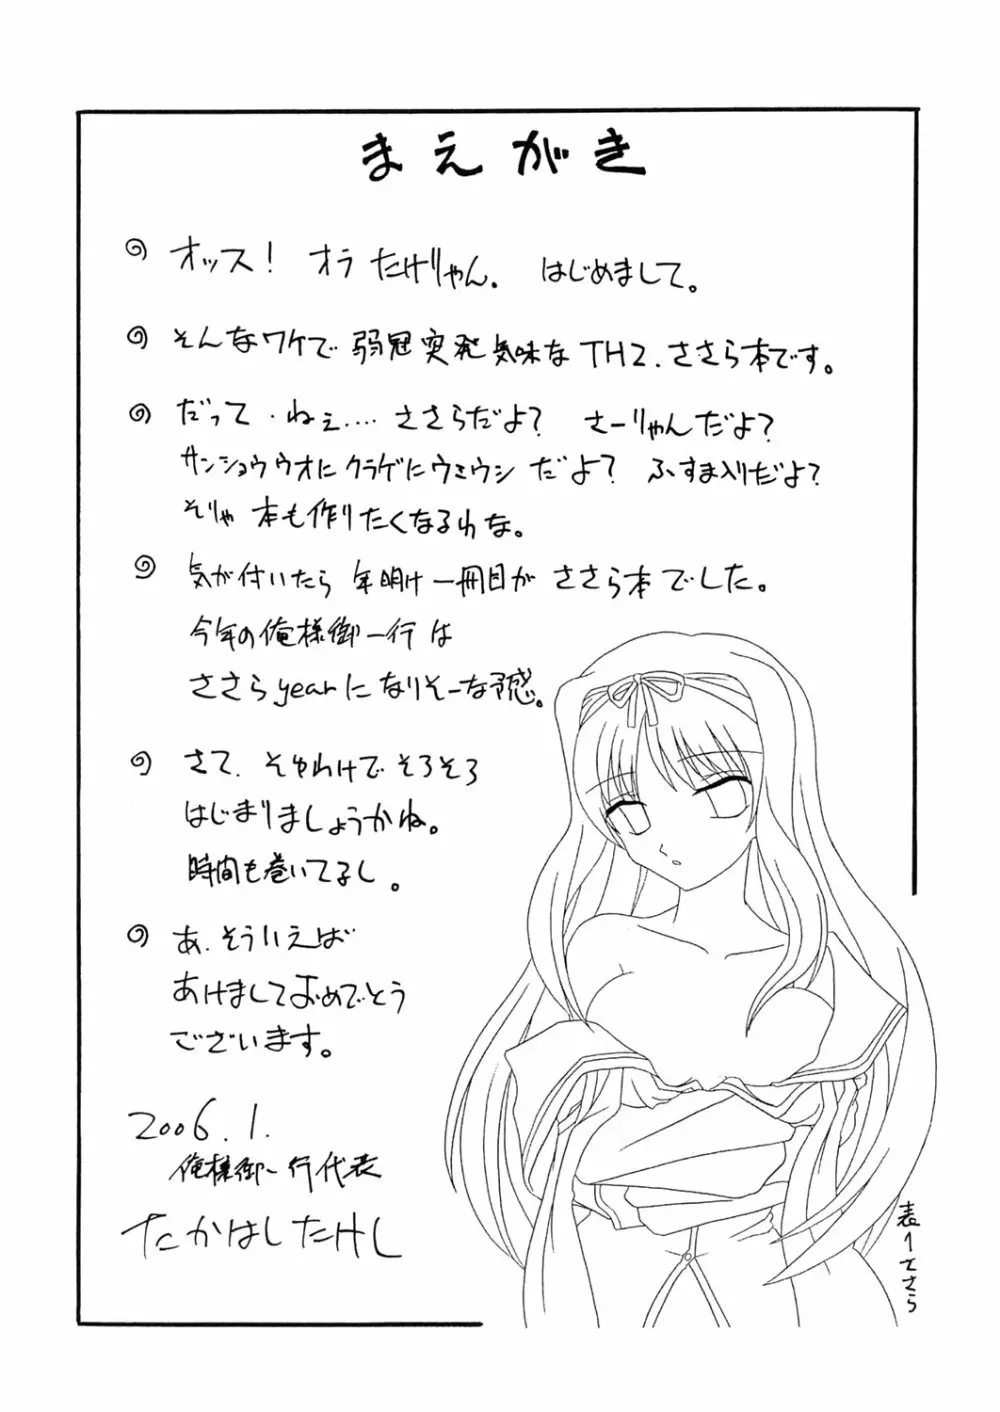 まえがき
オッス! オラ たけりゃん. はじめまして。
そんなワケで 弱冠突発気味な TH2.ささら本です。
だって・ねぇ.... ささらだよ? さーりゃんだよ?
サンショウウオにクラゲにウミウシ だよ? ふすま入りだよ?
そりゃ 本も作りたくなるわな。
気が付いたら 年明け一冊目が ささら本でした。
今年の俺様御一行は
ささらyearになりそーな予感。
さて. そゆわけで そろそろ
はじまりましょうかね。
時間も巻いてるし。
あ.そういえば
あけましておめでとう
ございます。
2006.1.
俺様御一行代表
たかはしたけし